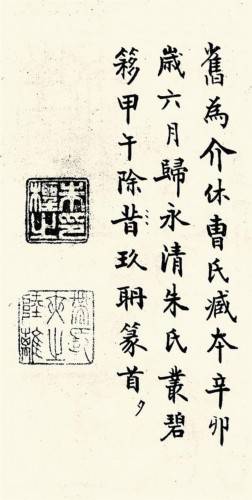 舊為介休曹氏臧本辛卯
歲六月歸永清朱氏叢碧
簃甲午除昔玖聃篆首
朱印
檉之